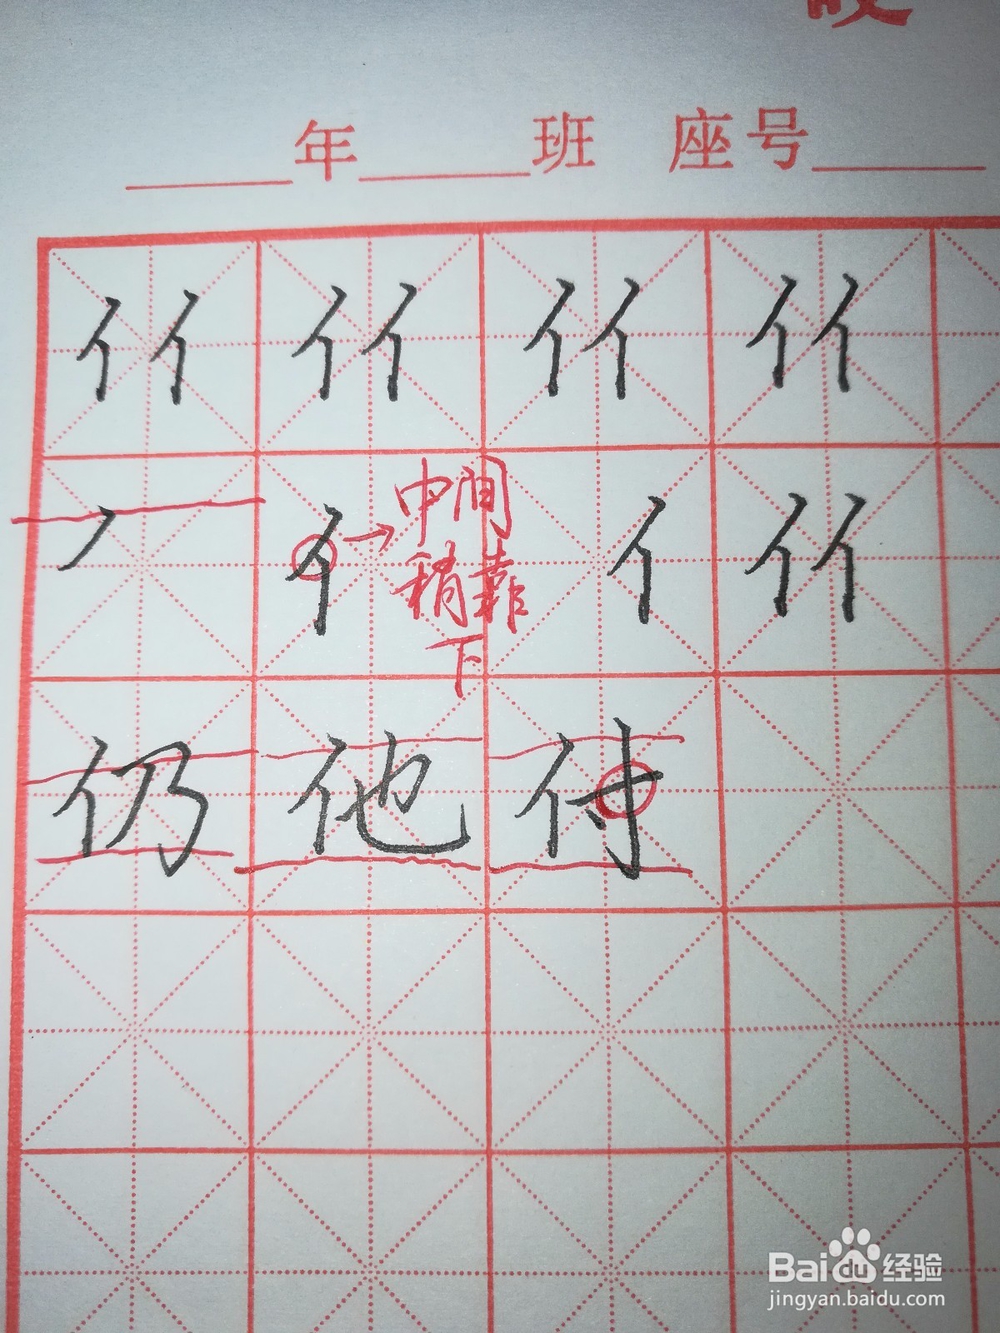 年 班 座号
亻亻 亻亻 亻亻 亻亻
丿 亻 亻 亻亻
中间
稍靠
下
仍 他 付
Baidu经验
jingyan.baidu.com